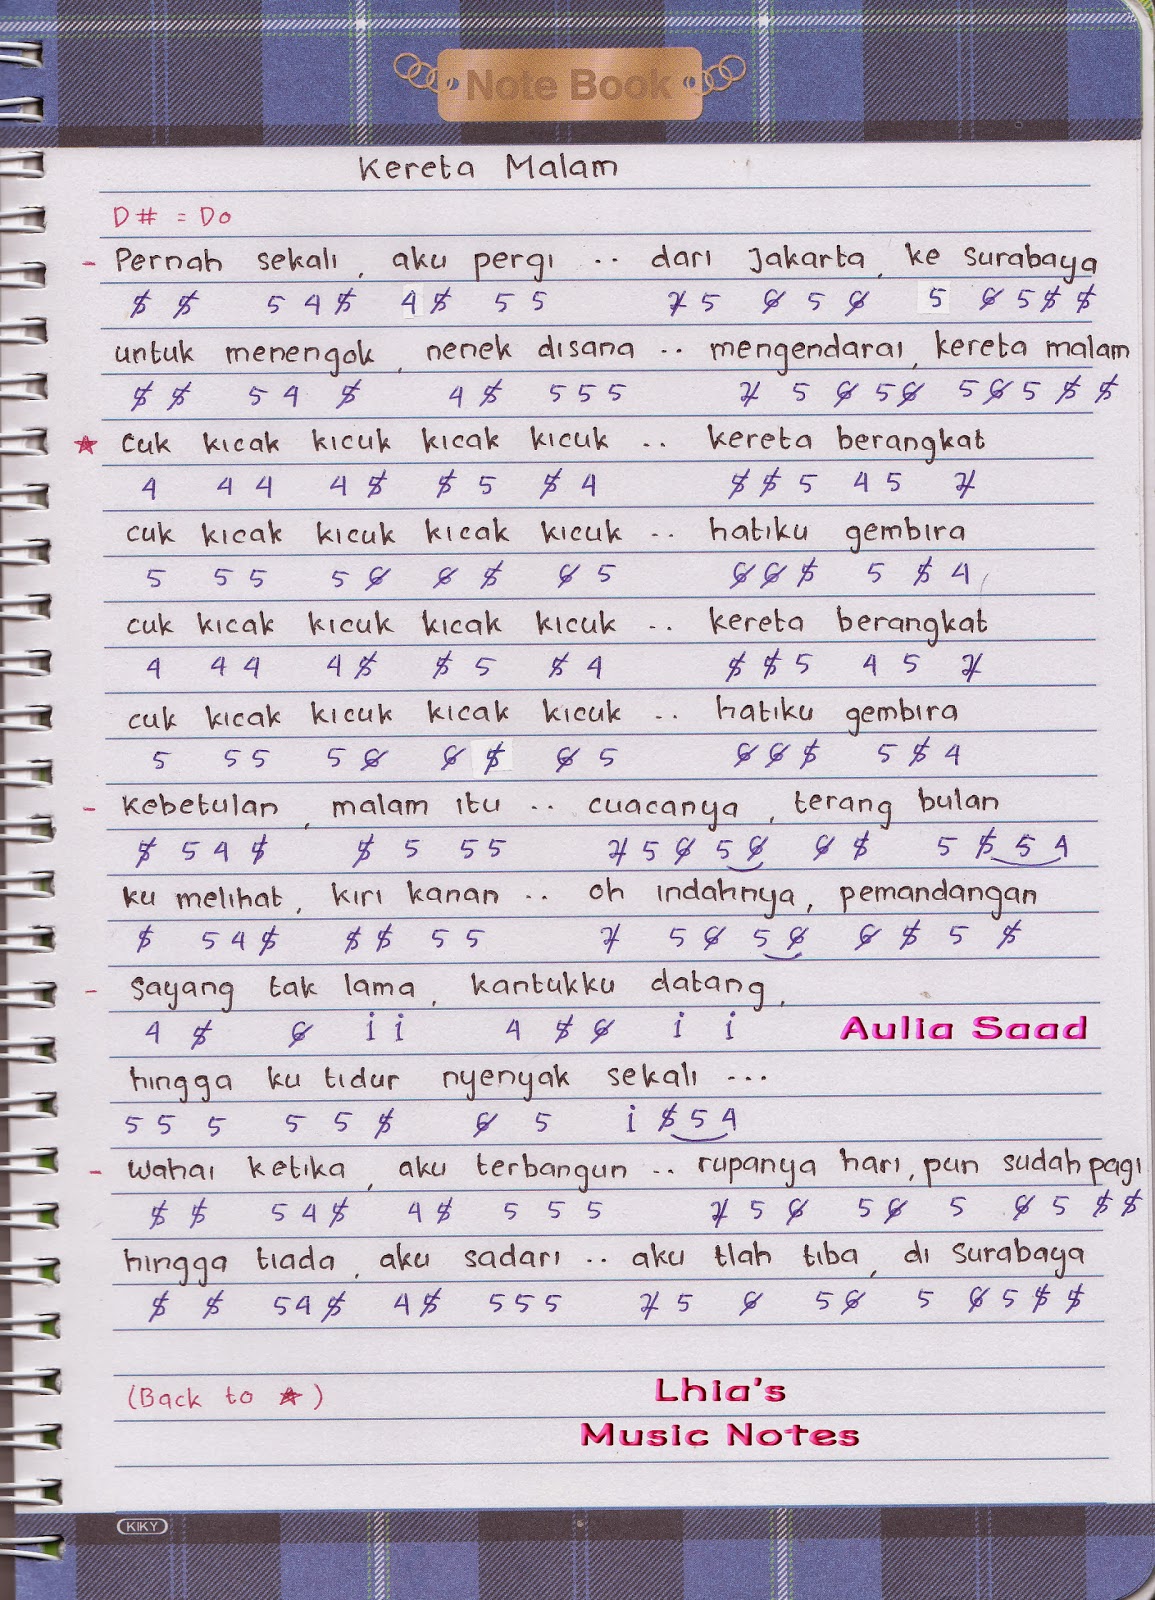 Note Book
Kereta Malam
D# = Do
- Pernah sekali, aku pergi .. dari Jakarta, ke Surabaya
5̸ 5̸ 5 4 5̸ 4 5̸ 5 5 7̸ 5 6̸ 5 6̸ 5 6̸ 5 5̸ 5̸
untuk menengok, nenek disana .. mengendarai, kereta malam
5̸ 5̸ 5 4 5̸ 4 5̸ 5 5 5 7̸ 5 6̸ 5 6̸ 5 6̸ 5 5̸ 5̸
★ cuk kicak kicuk kicak kicuk .. kereta berangkat
4 4 4 4 5̸ 5̸ 5 5̸ 4 5̸ 5̸ 5 4 5 7̸
cuk kicak kicuk kicak kicuk .. hatiku gembira
5 5 5 5 6̸ 6̸ 5̸ 6̸ 5 6̸ 6̸ 5̸ 5 5̸ 4
cuk kicak kicuk kicak kicuk .. kereta berangkat
4 4 4 4 5̸ 5̸ 5 5̸ 4 5̸ 5̸ 5 4 5 7̸
cuk kicak kicuk kicak kicuk .. hatiku gembira
5 5 5 5 6̸ 6̸ 5̸ 6̸ 5 6̸ 6̸ 5̸ 5 5̸ 4
- Kebetulan, malam itu .. cuacanya, terang bulan
5̸ 5 4 5̸ 5̸ 5 5 5 7̸ 5 6̸ 5 6̸ 6̸ 5̸ 5 5̸ 5 4
ku melihat, kiri kanan .. oh indahnya, pemandangan
5̸ 5 4 5̸ 5̸ 5̸ 5 5 7̸ 5 6̸ 5 6̸ 6̸ 5̸ 5 5̸
- Sayang tak lama, kantukku datang,
4 5̸ 6̸ i i 4 5̸ 6̸ i i
Aulia Saad
hingga ku tidur nyenyak sekali ...
5 5 5 5 5 5̸ 6̸ 5 i 5̸ 5 4
- Wahai ketika, aku terbangun .. rupanya hari, pun sudah pagi
5̸ 5̸ 5 4 5̸ 4 5̸ 5 5 5 7̸ 5 6̸ 5 6̸ 5 6̸ 5 5̸ 5̸
hingga tiada, aku sadari .. aku tlah tiba, di Surabaya
5̸ 5̸ 5 4 5̸ 4 5̸ 5 5 5 7̸ 5 6̸ 5 6̸ 5 6̸ 5 5̸ 5̸
(Back to ★)
Lhia's
Music Notes
KIKY